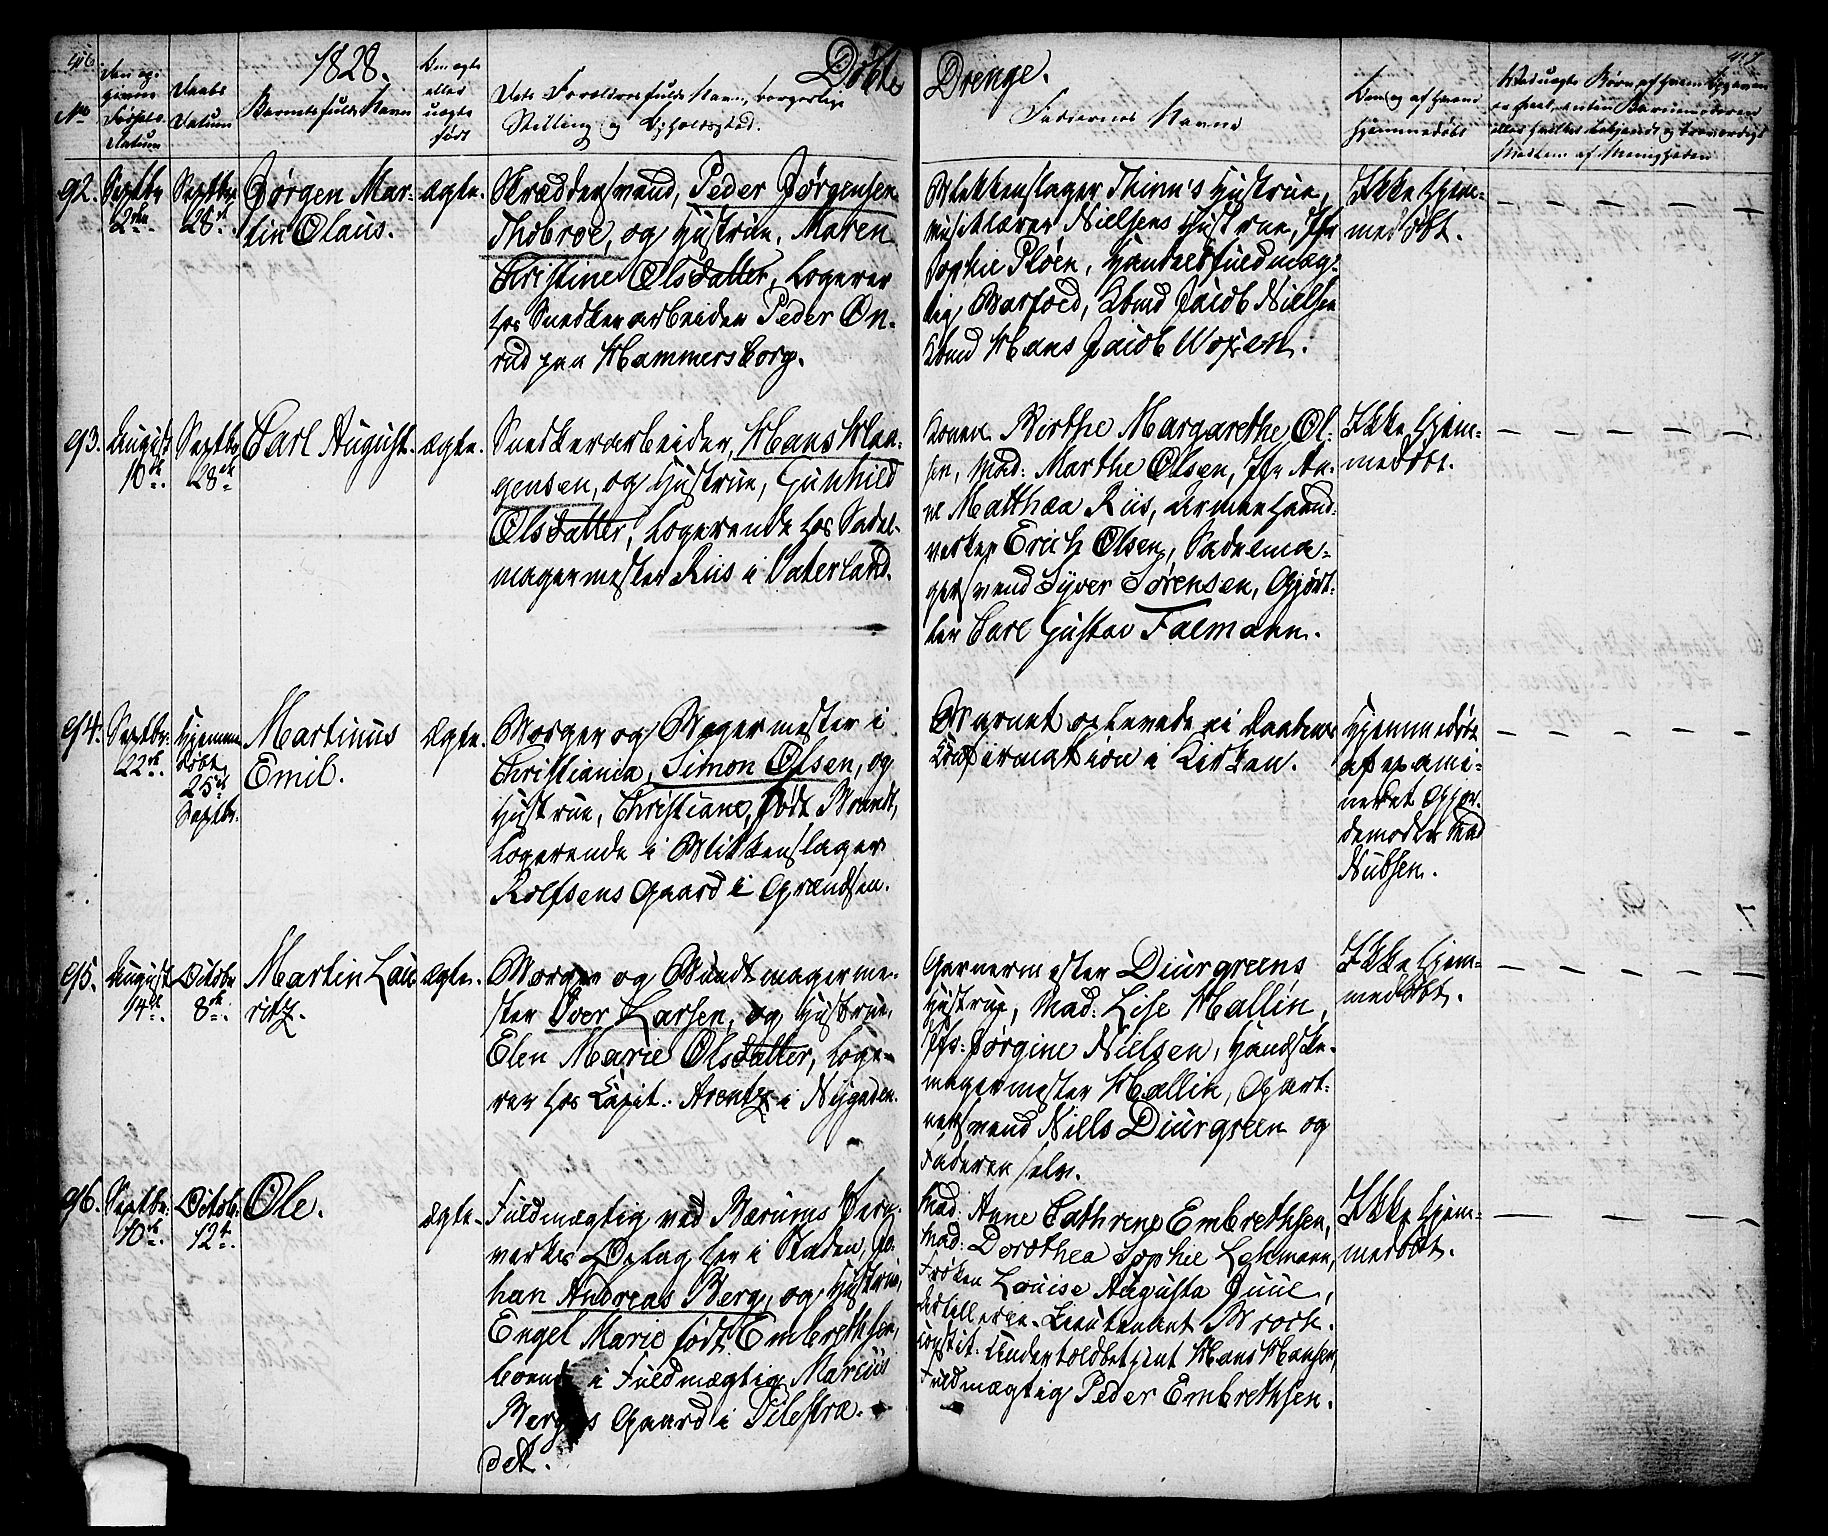 1828.
Døbte
Drenge.
No
Den op-
givne
Fødsels-
Datum
Daabs
Datum
Barnets fulde Navn
Om ægte
eller
uægte
født
Dets Forældres fulde Navn, borgerlige
Stilling og Opholdssted.
Faddernes Navne
Om og af hvem
hjemmedøbt
92.
Septbr
2den.
Septbr.
28de.
Jørgen Mar-
tin Olaus.
ægte.
Skræddersvend, Peder Jørgensen
Thobroe, og Hustrue, Maren
Christine Olsdatter, Logerer
hos Snedkerarbeider Peder On-
rud paa Hammersborg.
Blikkenslager Thinn's Hustrue,
Nielsens Hustrue, Jfr
Sophie Pløen, Handelsfuldmæg-
tig Barfoed, Jacob Nielsen
Hans Jacob Woxen.
Ikke hjem-
medøbt.
93.
August
10de.
Septbr.
28de
Carl August.
ægte.
Snedkerarbeider, Hans Haa-
gensen, og Hustrue, Gunhild
Olsdatter, Logerende hos Sadel-
magermester Riis i Vaterland.
Konen Birthe Margarethe Ol-
sen, Mad: Marthe Olsen, Jfr An-
ne Matthea Riis,
Erich Olsen, Sadelma-
gersvend Syver Sørensen, Gjørt-
ler Carl Gustav Falmann.
Ikke hjem-
medøbt.
94.
Septbr.
22de.
Hjemme
døbt
25de
Septbr.
Martinus
Emil.
ægte.
Borger og Bagermester i
Christiania, Simon Olsen, og
Hustrue, Christiane, født Brandt,
Logerende i Blikkenslager
Rolfsens Gaard i Grændsen.
Barnet oplevede ei Daabens
Confirmation i Kirken.
Hjemmedøbt
af exami-
neret Gjor-
demoder Mad
Nubsen.
95.
August
14de.
Octobr
8de.
Martin Lau
ritz.
ægte.
Borger og Bundtmagerme-
ster Iver Larsen, og Hustrue,
Elen Marie Olsdatter, Loge-
rer hos Capit: Arentz i Nygaden.
Garvermester Diurgreens
Hustrue, Mad: Lise Hallin,
Jfr: Jørgine Nielsen, Handske-
magermester Hallin, Gart-
nersvend Niels Diurgreen og
Faderen selv.
Ikke hjem-
medøbt.
96.
Septbr.
10de.
Octobr.
12te.
Ole.
ægte.
Fuldmægtig ved Bærums Jern-
værks Oplag her i Staden, Jo-
han Andreas Berg, og Hustrue,
Engel Marie født Embrethsen,
boende i Fuldmægtig Marcus
Bergs Gaard i Pilestræ-
det.
Mad: Anne Cathrine Embrethsen,
Mad: Dorothea Sophie Lehmann,
Frøken Louise Augusta Juul,
Artillerie-Lieutenant Broch.
Constit. Undertoldbetjent Hans Hansen,
Fuldmægtig Peder Embrethsen.
Ikke hjem-
medøbt.